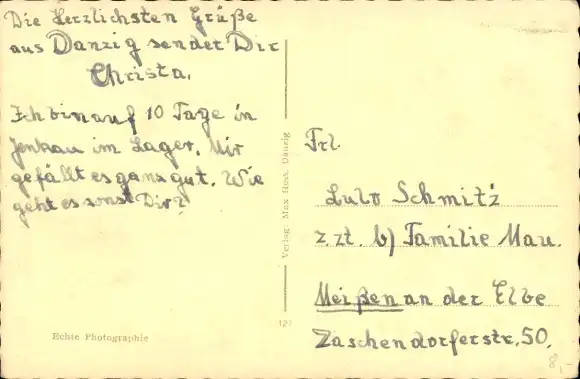 Die Herzlichsten Grüße
aus Danzig sendet Dir
Christa.
Ich bin auf 10 Tage in
Jenkau im Lager. Mir
gefällt es ganz gut. Wie
geht es sonst Dir?
Echte Photographie
Verlag: Max Hess, Danzig
127
Frl
Schmitz
z.zt. b) Familie Mau.
Meißen an der Elbe
Zaschendorferstr. 50.
8,-